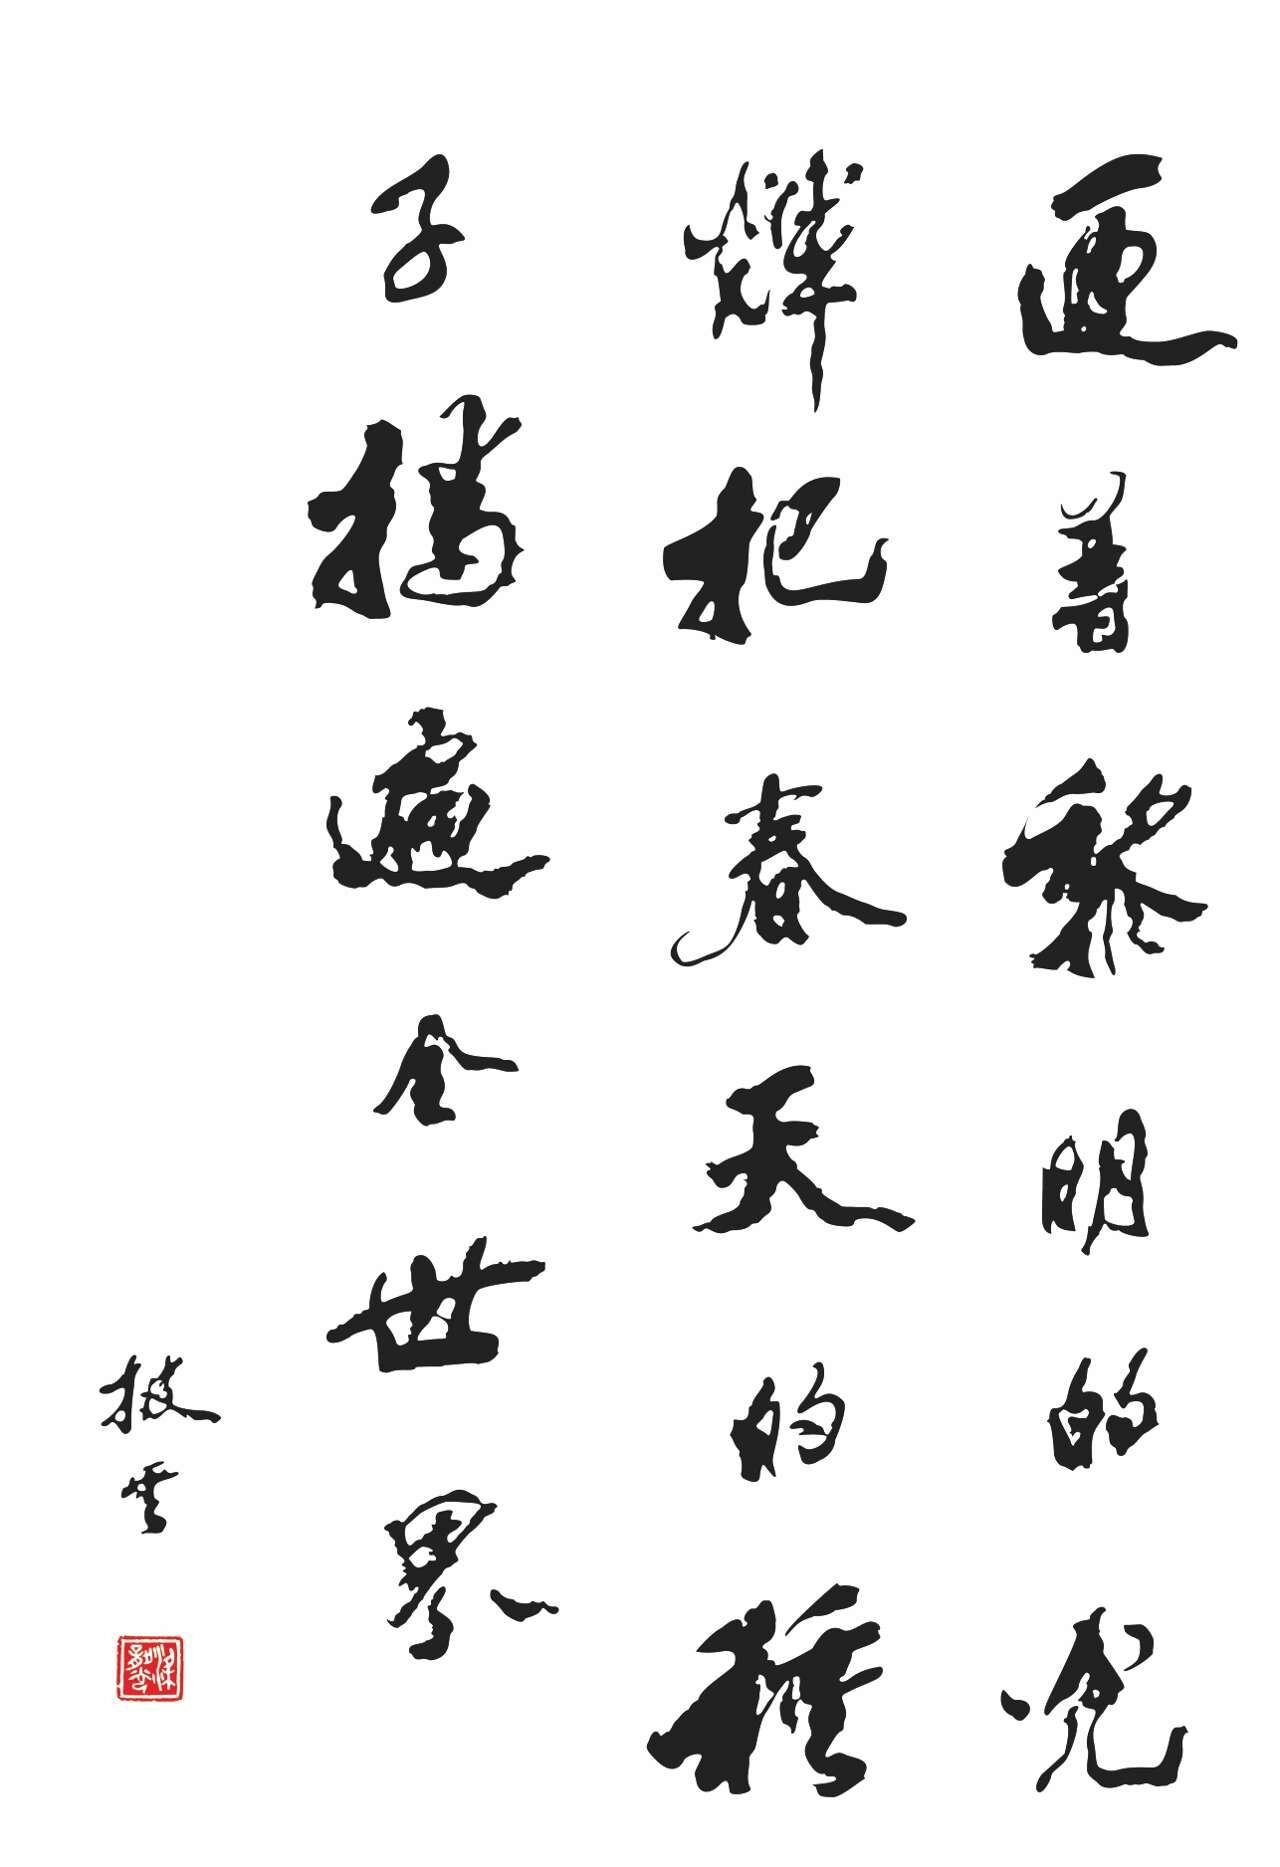 迎着黎明的光
輝把春天的種
子播遍全世界
披雲